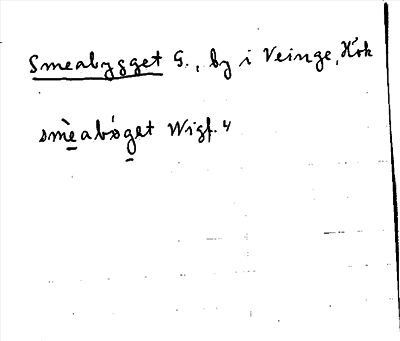 Smeabygget G., by i Veinge, Hök
smèabǿget Wigf. 4